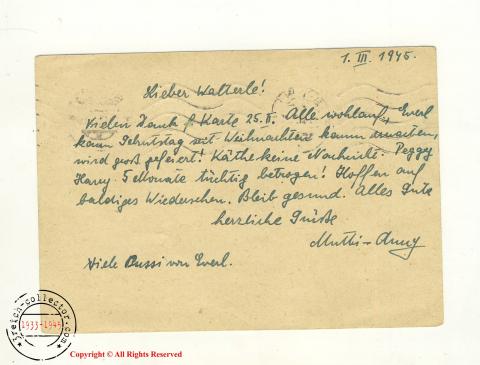 1. III. 1945.
Lieber Walterle!
Vielen Dank f. Karte 25.II. Alle wohlauf, Everl
kann Geburtstag seit Weihnachten kaum erwarten,
wird groß gefeiert! Käthe keine Nachricht. Peggy
Harry 5 Monate tüchtig betrogen! Hoffen auf
baldiges Wiedersehen. Bleib gesund. Alles Gute
herzliche Grüße
Mutti-
Viele Bussi von Everl.
3reich-collector.com
1933-1945
Copyright © All Rights Reserved